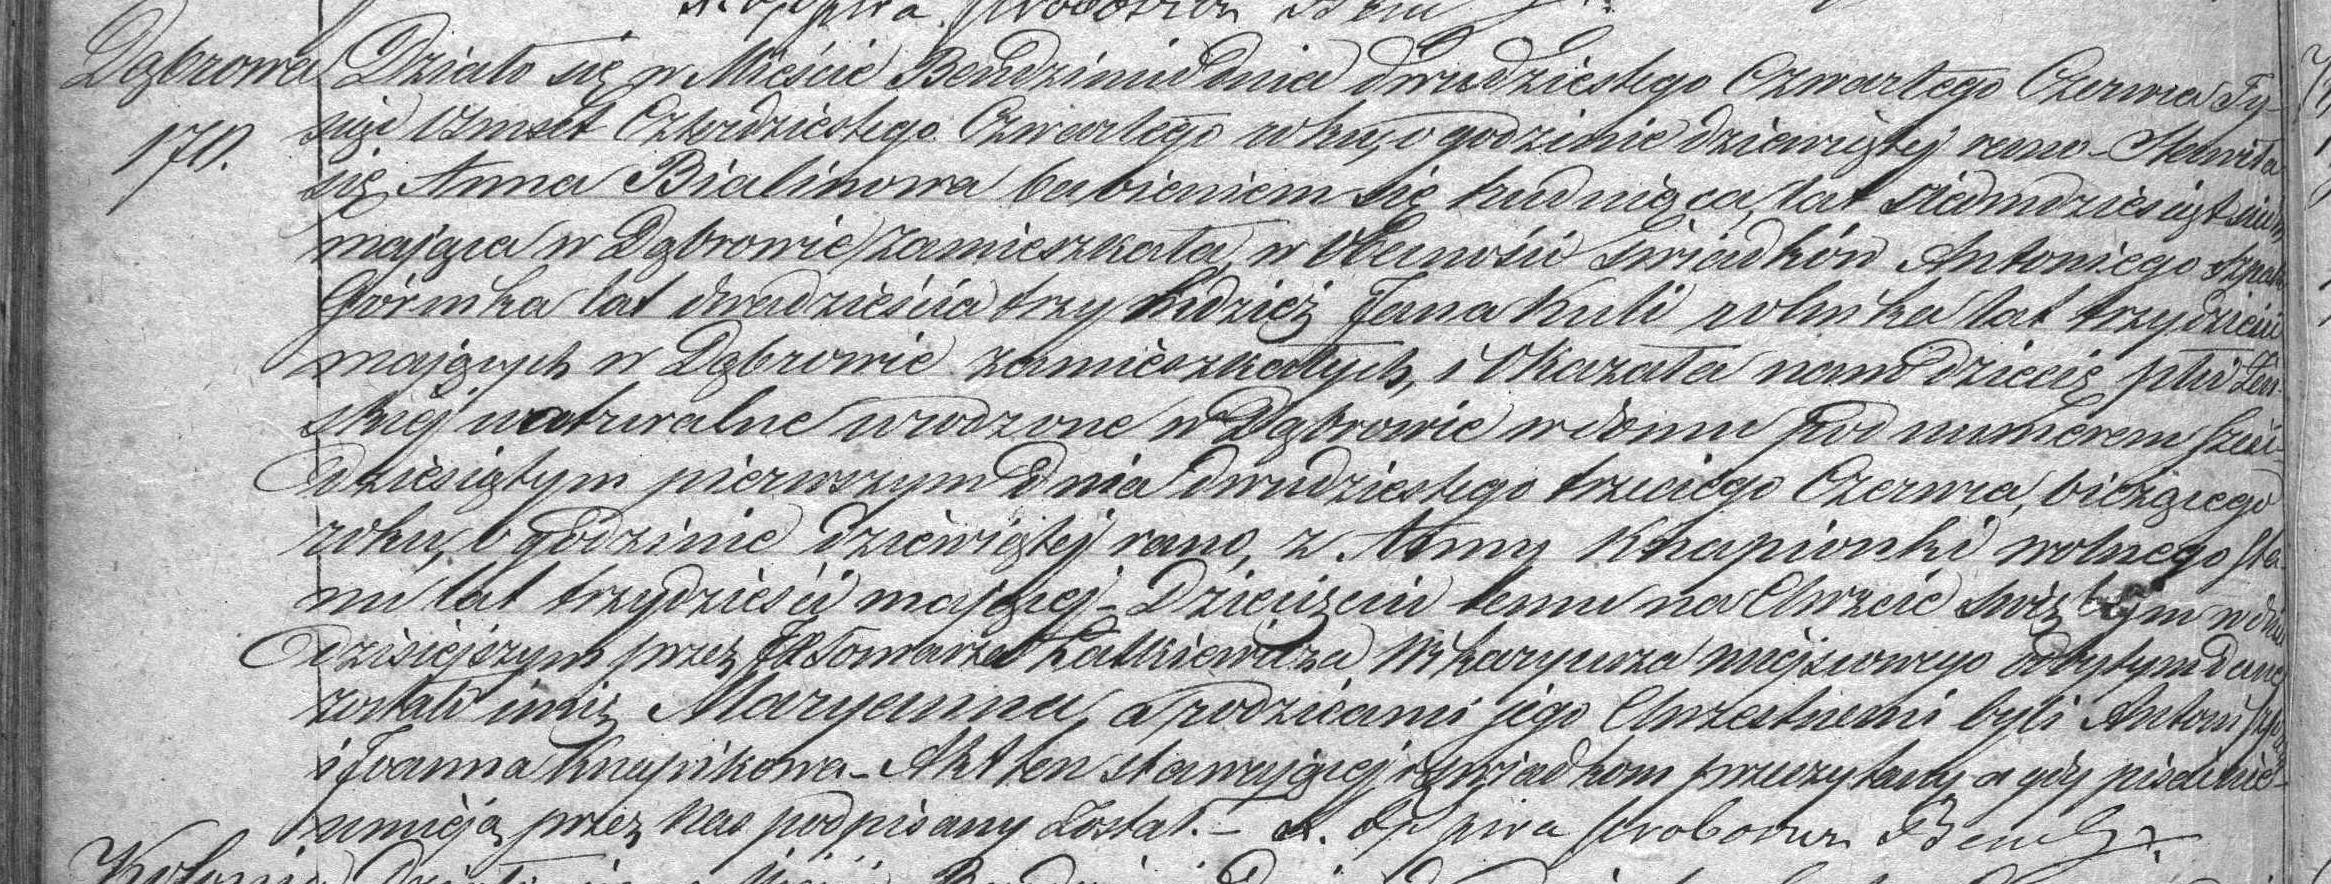 Dąbrowa Działo się w Mieście Bendzinie dnia dwudziestego Czwartego Czerwca Ty-
170. siąc ośmset Czterdziestego Czwartego roku, o godzinie dziewiątej rano - Stawiła
się Anna Bialinowa babieniem się trudniąca, lat siedmdziesiąt siedm
mająca w Dąbrowie zamieszkała, w Obecności świadków Antoniego
Górnika lat dwadzieścia trzy tudzież Jana Kuli rolnika lat trzydzieści
mających w Dąbrowie zamieszkałych, i Okazała nam dziecię płci Żeń-
skiej naturalne urodzone w Dąbrowie w domu pod numerem sześć-
dziesiątym pierwszym dnia dwudziestego trzeciego Czerwca, bieżącego
roku, o godzinie dziewiątej rano, z Anny Knapionki wolnego sta-
nu lat trzydzieści mającej - Dziecięciu temu na Chrzcie świętym w dniu
dzisiejszym przez Wikaryusza miejscowego odbytym dane
zostało imię Maryanna, a rodzicami jego Chrzestnemi byli Antoni
i Joanna Knapikowa - Akt ten stawającej i świadkom przeczytany a gdy pisać nie-
umieją przez nas podpisany został. - proboszcz Bendz.
Kolonia Działo się w Mieście